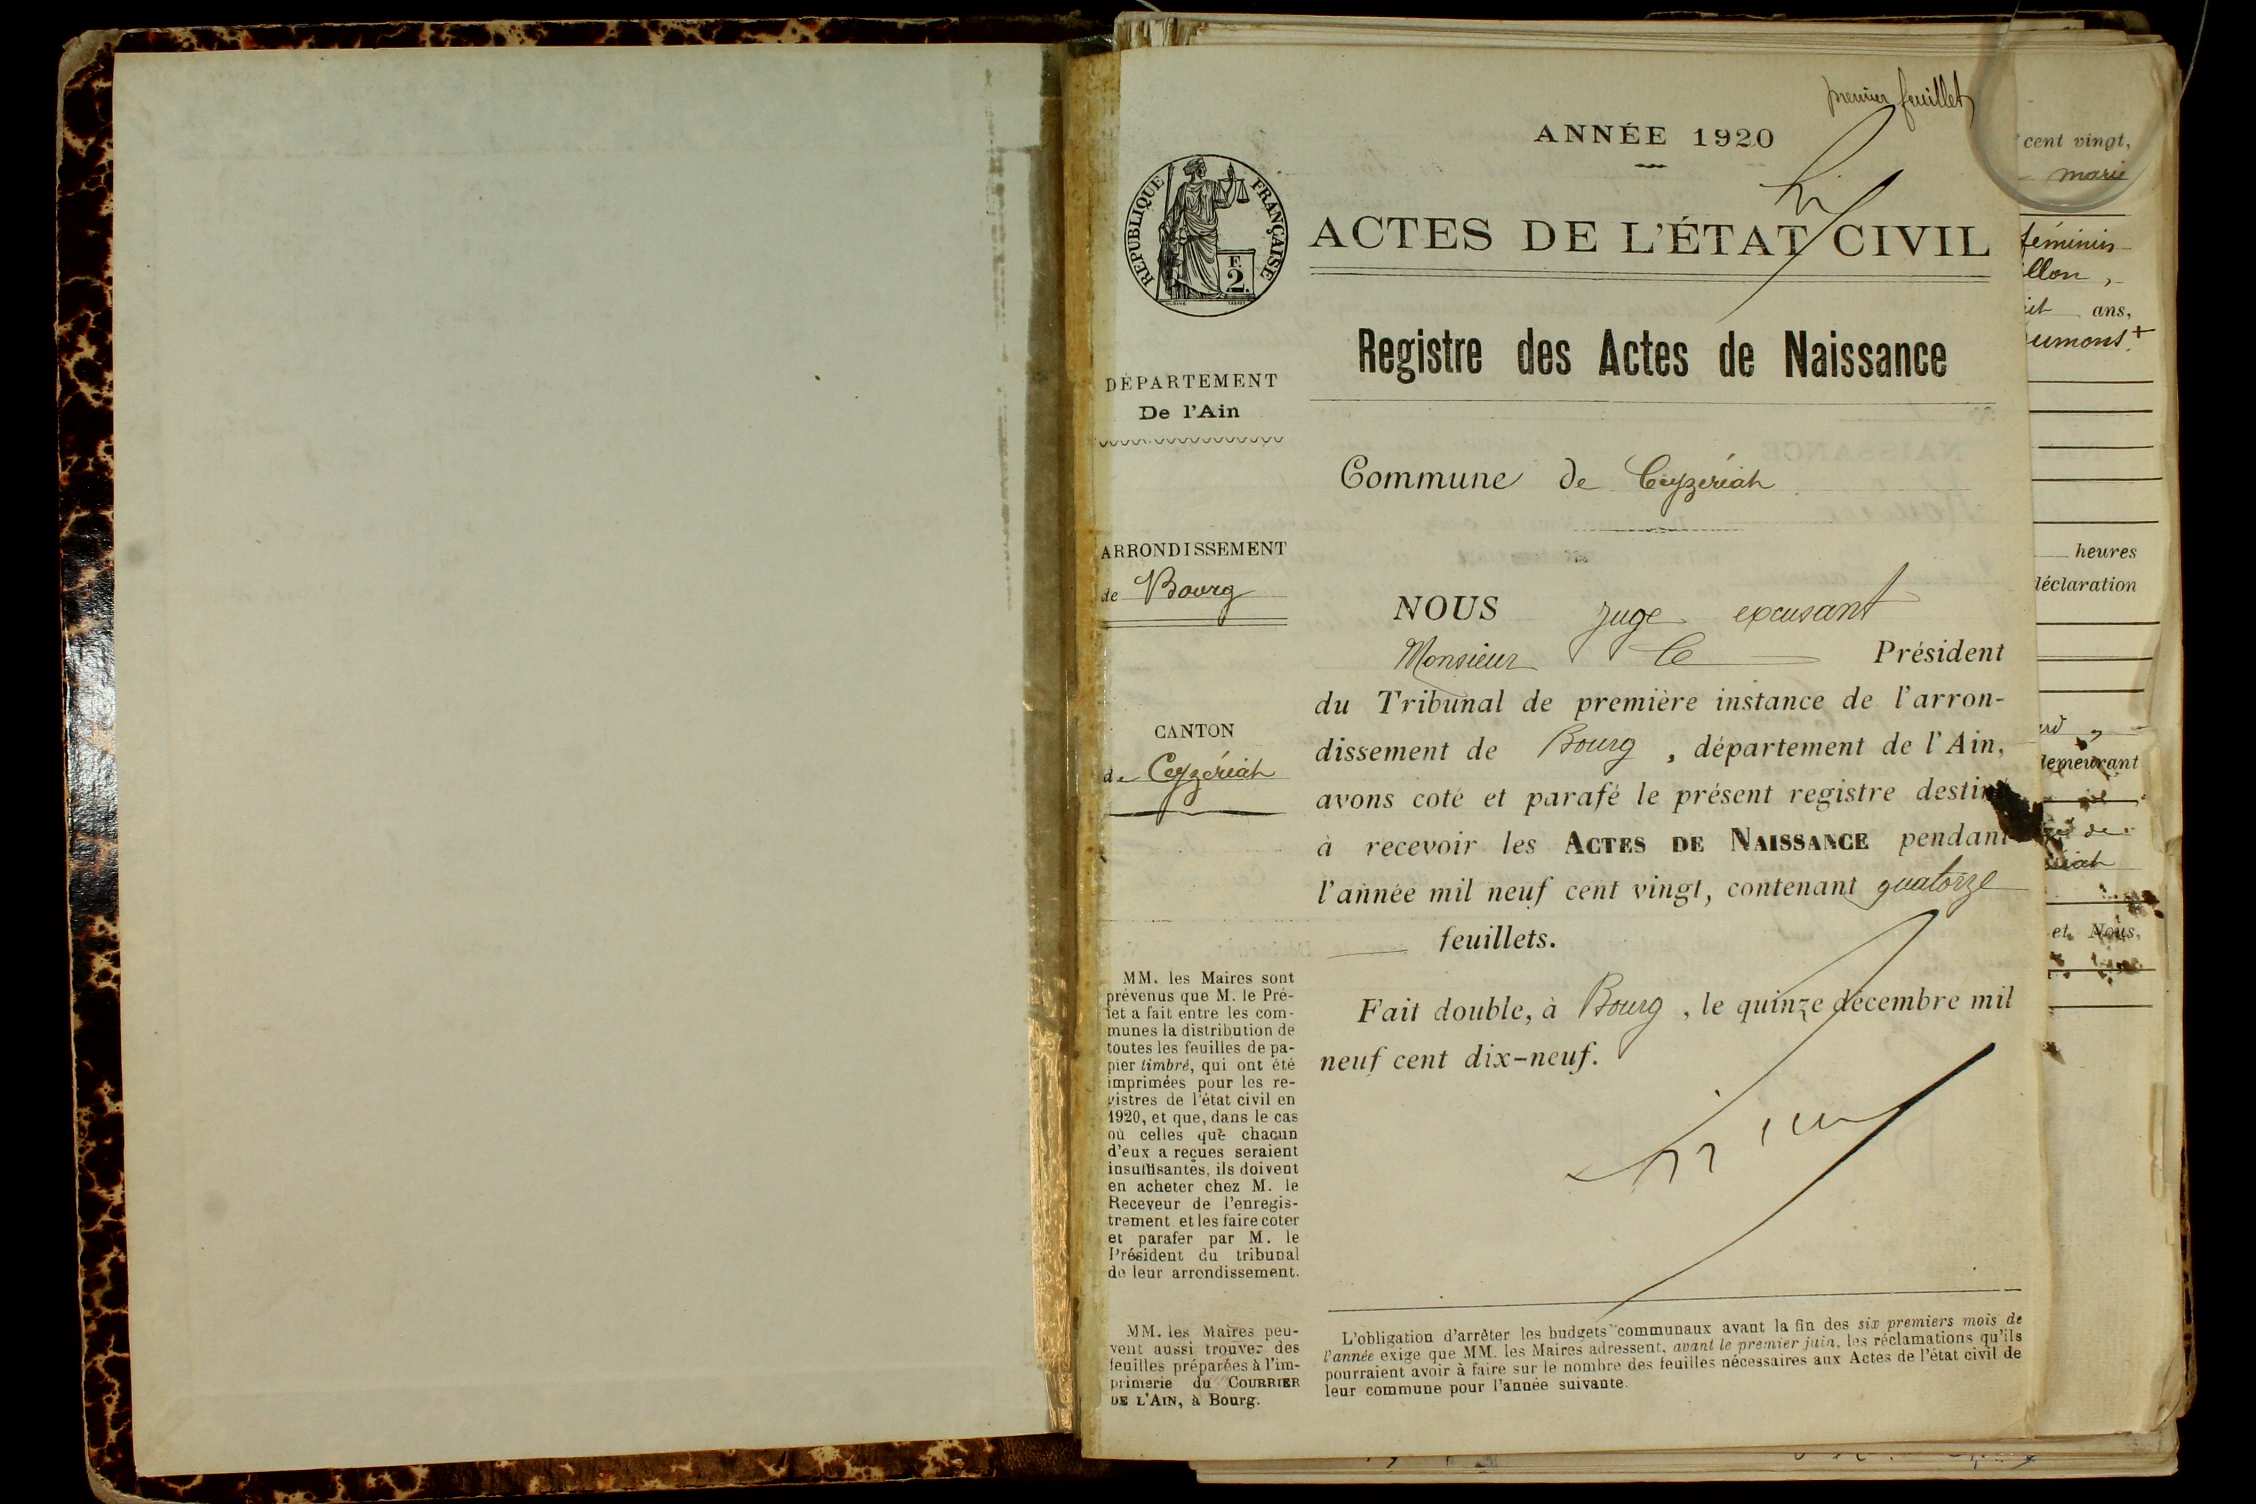 premier feuillet
ANNÉE 1920
RÉPUBLIQUE FRANÇAISE
F.
2.
ACTES DE L'ÉTAT CIVIL
Registre des Actes de Naissance
DÉPARTEMENT
De l'Ain
Commune de Ceyzériat
ARRONDISSEMENT
de Bourg
CANTON
de Ceyzériat
NOUS juge excusant
Monsieur le Président
du Tribunal de première instance de l'arron-
dissement de Bourg, département de l'Ain,
avons coté et parafé le présent registre destiné
à recevoir les ACTES DE NAISSANCE pendant
l'année mil neuf cent vingt, contenant quatorze
feuillets.
Fait double, à Bourg, le quinze décembre mil
neuf cent dix-neuf.
MM. les Maires sont
prévenus que M. le Pré-
fet a fait entre les com-
munes la distribution de
toutes les feuilles de pa-
pier timbré, qui ont été
imprimées pour les re-
gistres de l'état civil en
1920, et que, dans le cas
où celles que chacun
d'eux a reçues seraient
insuffisantes, ils doivent
en acheter chez M. le
Receveur de l'enregis-
trement et les faire coter
et parafer par M. le
Président du tribunal
de leur arrondissement.
MM. les Maires peu-
vent aussi trouver des
feuilles préparées à l'im-
primerie du COURRIER
DE L'AIN, à Bourg.
L'obligation d'arrêter les budgets communaux avant la fin des six premiers mois de
l'année exige que MM. les Maires adressent, avant le premier juin, les réclamations qu'ils
pourraient avoir à faire sur le nombre des feuilles nécessaires aux Actes de l'état civil de
leur commune pour l'année suivante.
cent vingt,
marie
féminin
illon,
ans,
heures
déclaration
demeurant
de
et Nous,